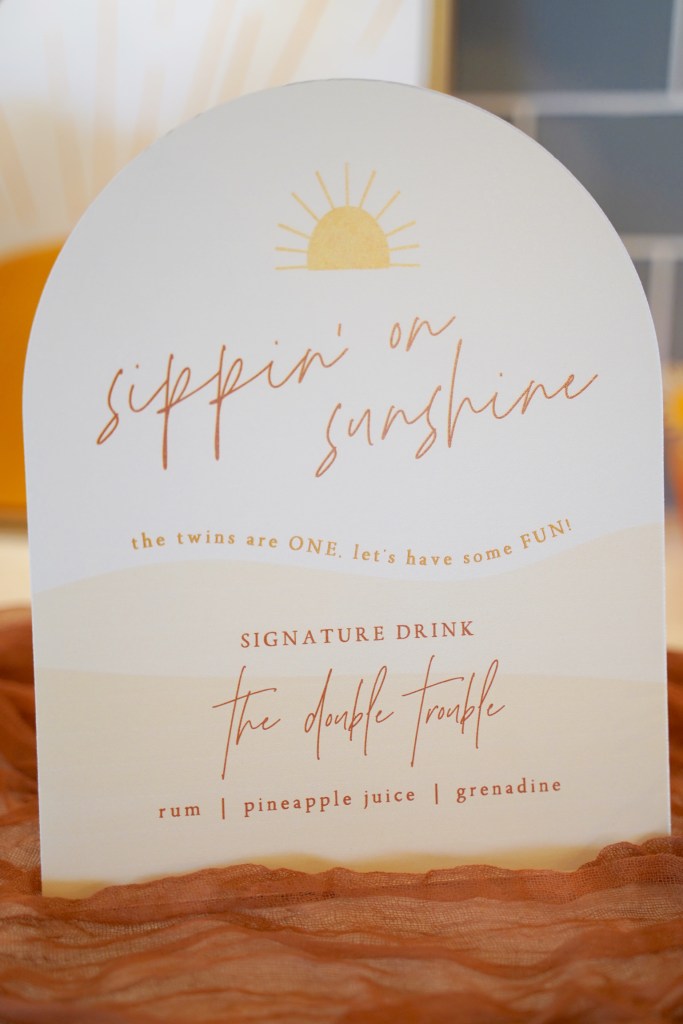 sippin' on
sunshine
the twins are ONE. let's have some FUN!
SIGNATURE DRINK
the double trouble
rum | pineapple juice | grenadine